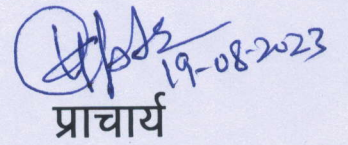 19-08-2023
प्राचार्य